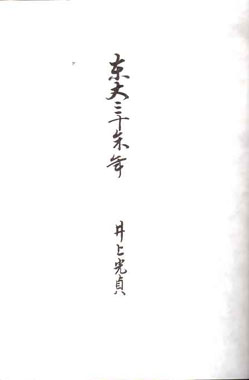 東大三十余年
井上光貞